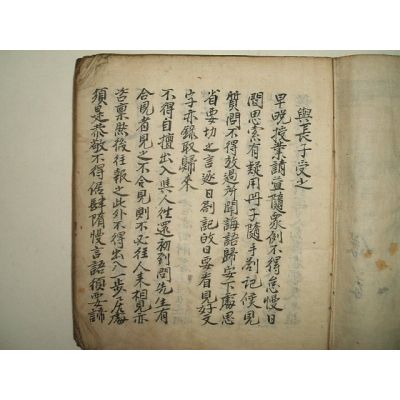 與長子受之
早晩授業請益隨衆例不得怠慢日
間思索有疑用冊子隨手劄記候見
質問不得放過所聞誨語歸安下處思
省要切之言逐日劄記敀日要看見好文
字亦錄取歸來
不得自擅出入與人往還初到問先生有
合見者見之不合見則不必往人來相見亦
咨稟然後往報之此外不得出入一步居處
須是恭敬不得倨肆惰慢言語須要諦